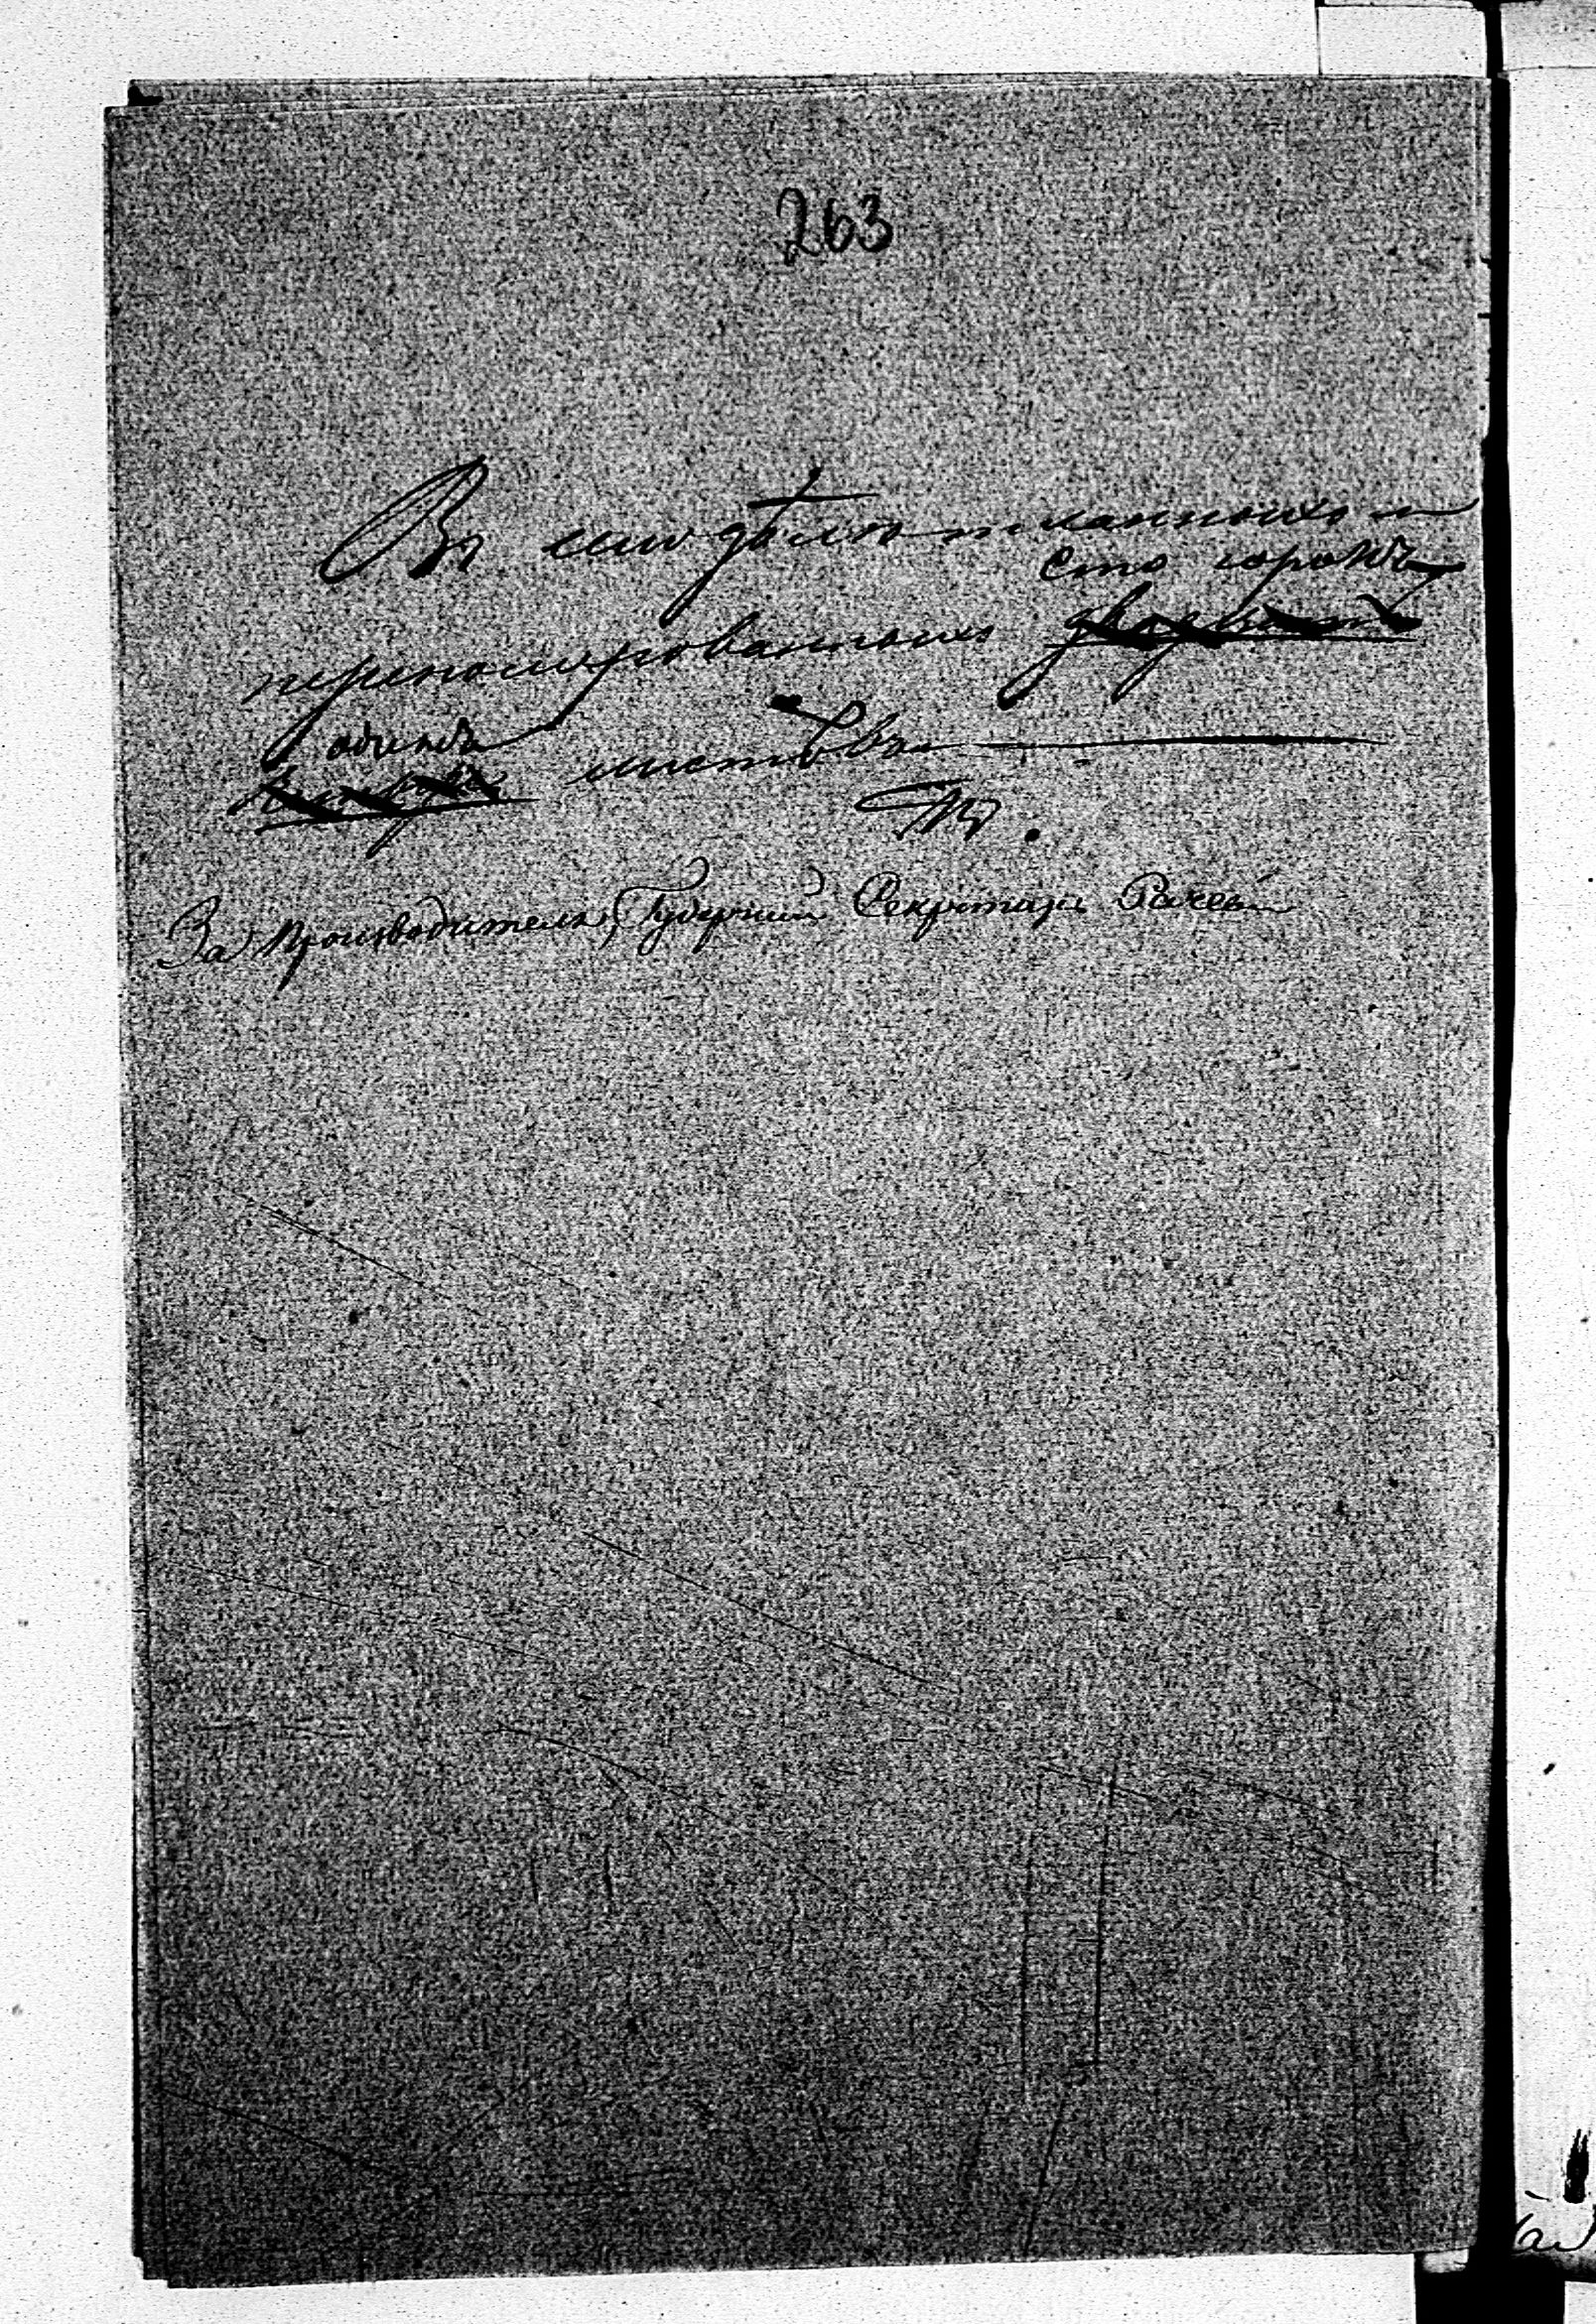 263
Въ семъ дѣлѣ писанныхъ и
сто сорокъ
перенумерованныхъ
одинъ
листовъ
За Производителя, Губернскій Секретарь